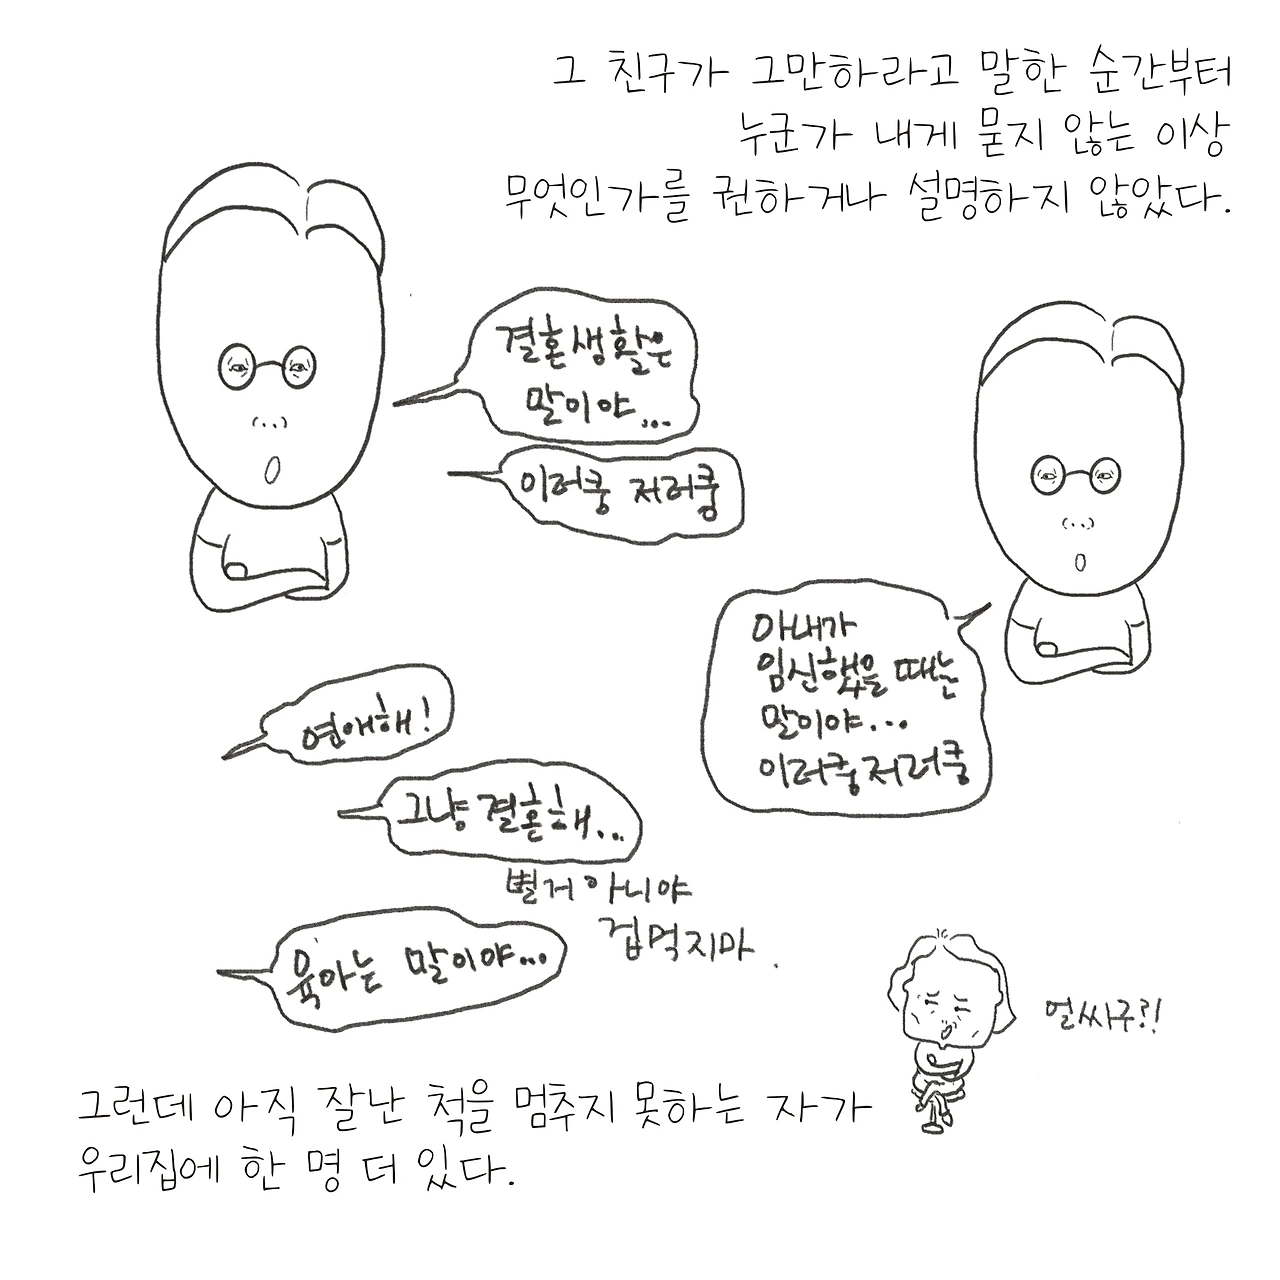 그 친구가 그만하라고 말한 순간부터
누군가 내게 묻지 않는 이상
무엇인가를 권하거나 설명하지 않았다.
결혼생활은
말이야...
이러쿵 저러쿵
아내가
임신했을 때는
말이야...
이러쿵저러쿵
연애해!
그냥 결혼해...
별거 아니야
겁먹지마.
육아는 말이야...
얼싸구?!
그런데 아직 잘난 척을 멈추지 못하는 자가
우리집에 한 명 더 있다.